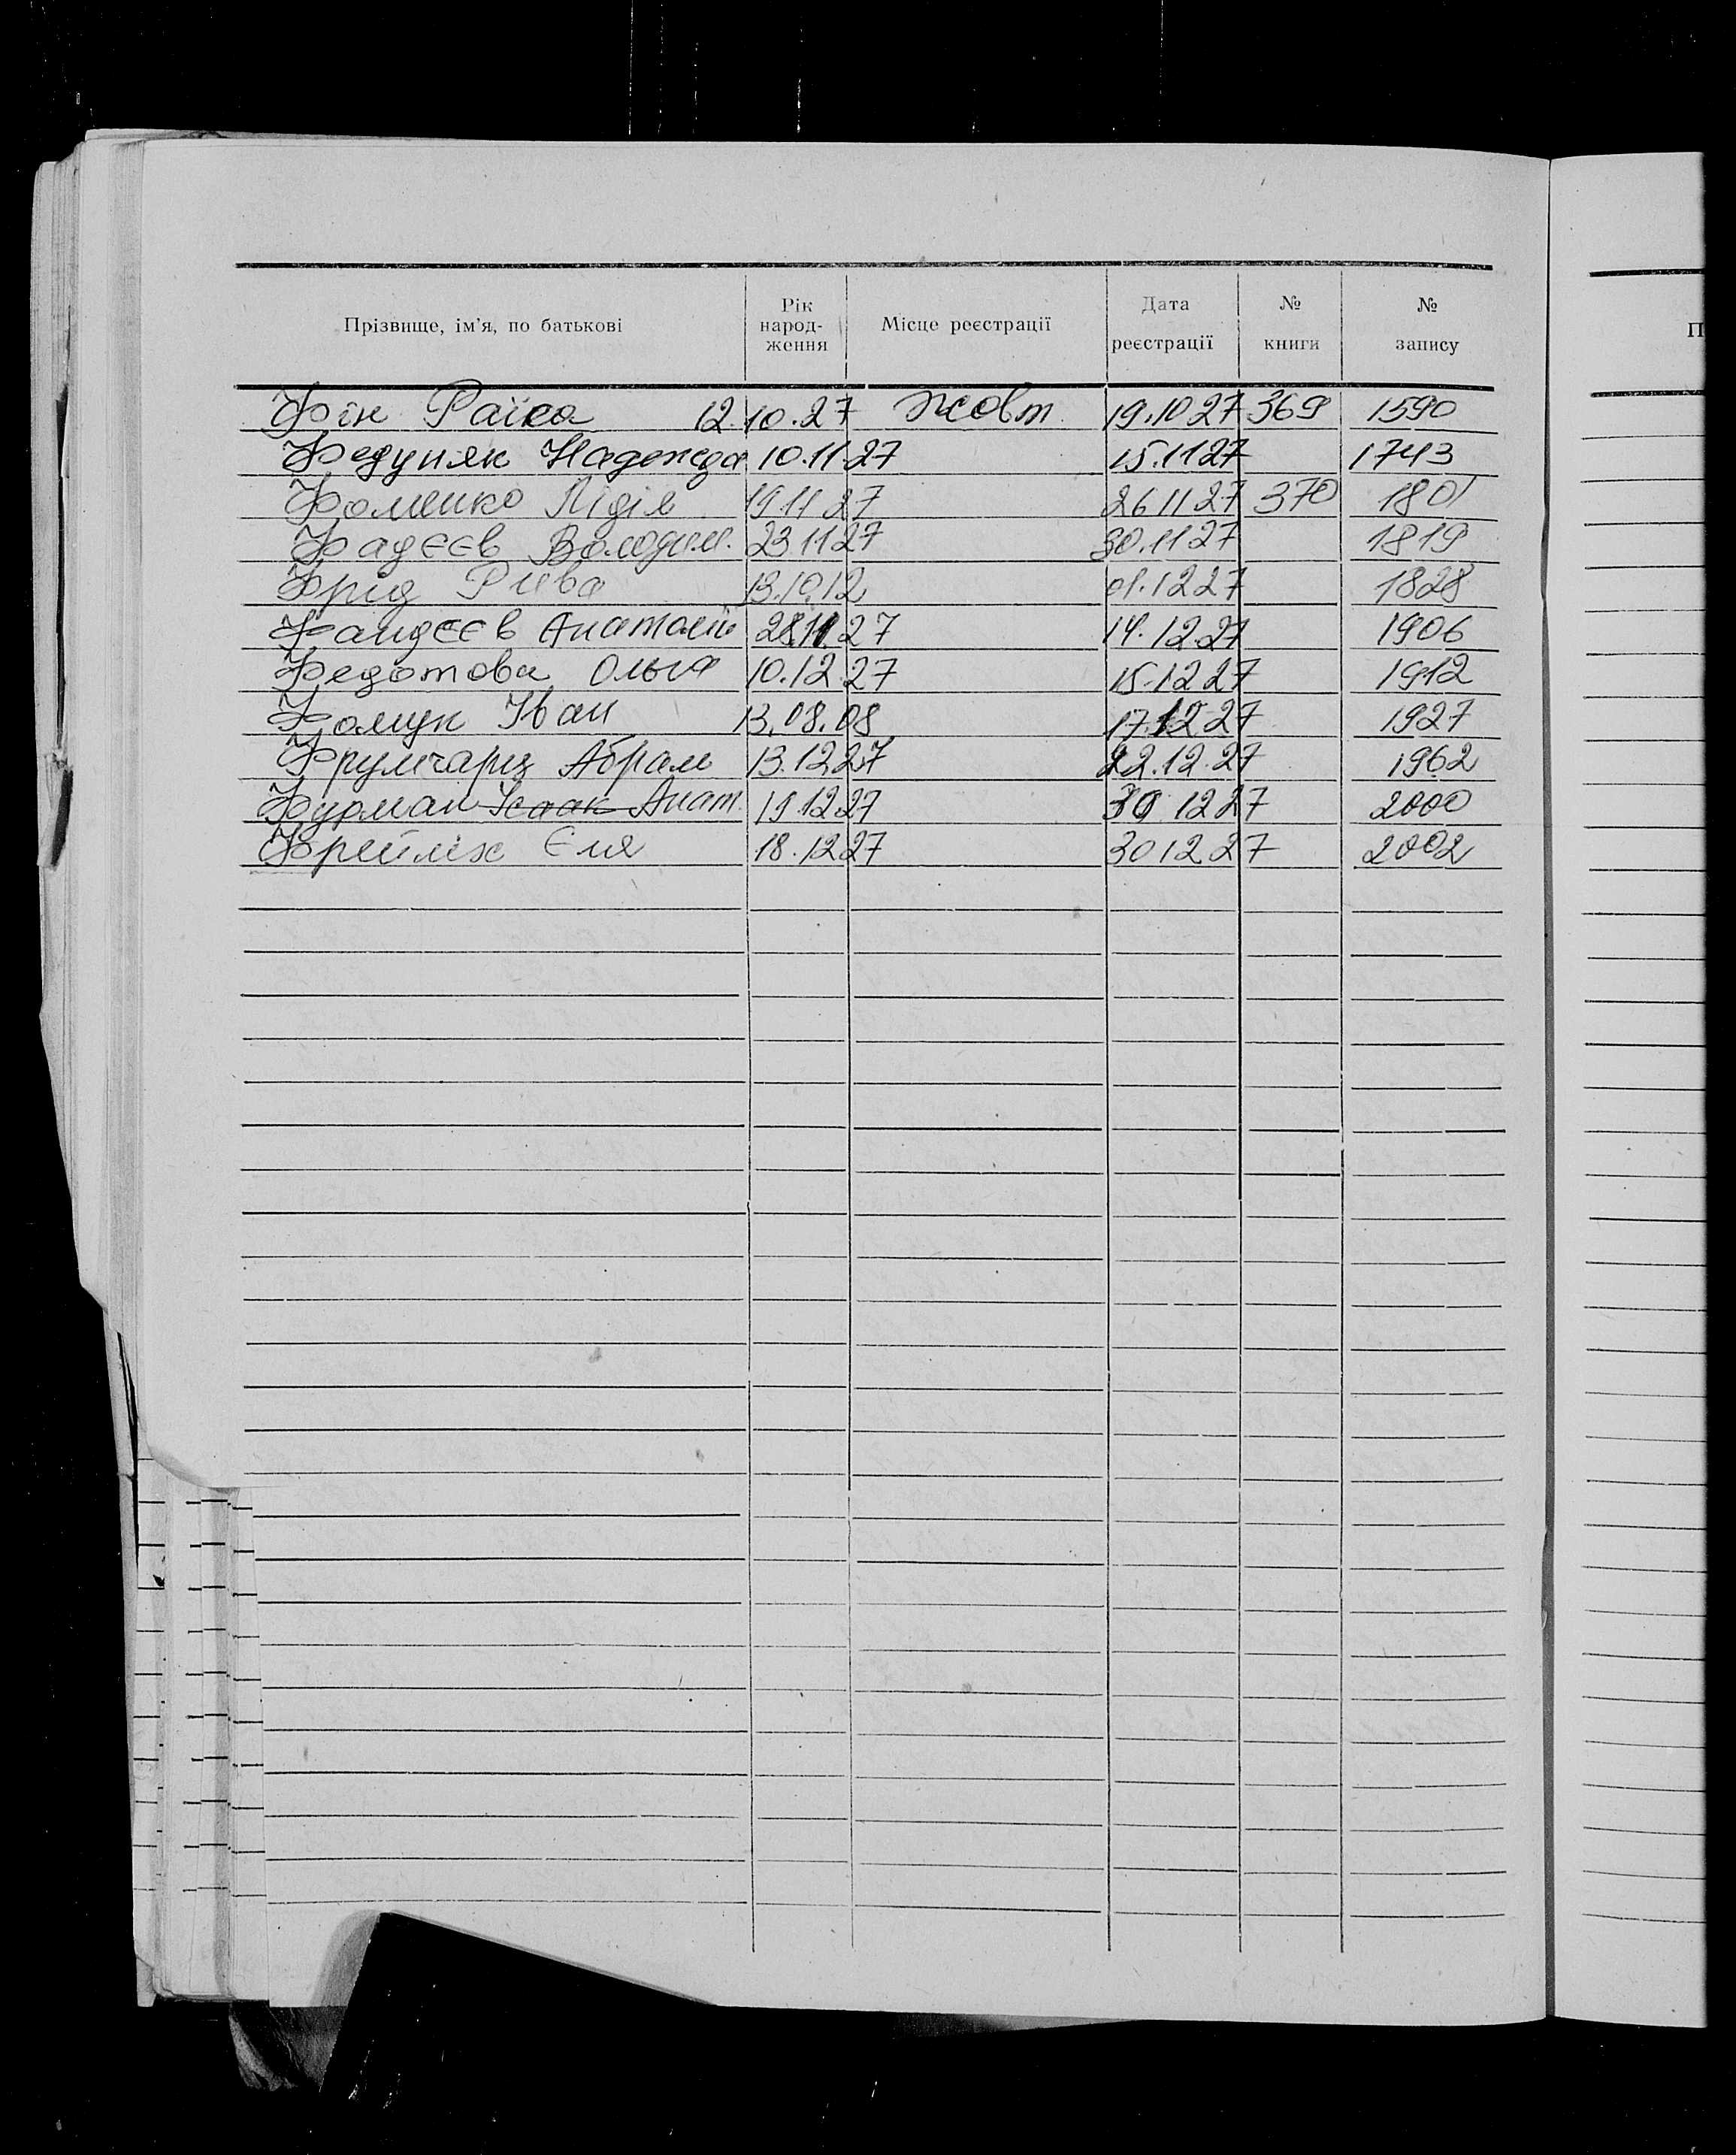 Прізвище, ім'я, по батькові Рік народ-ження Місце реєстрації Дата реєстрації № книги № запису П
Фін Раїса 12.10.27 Жовт. 19.10 27 369 1590
Федуняк Надежда 10.11.27 15.11 27 1743
Фоменко Лідія 19 11 27 26 11 27 370 1801
Фадєєв Володим. 23 11 27 30.11 27 1819
Фрід Рива 13.10.12 01.12 27 1828
Фандєєв Анатолій 28.11.27 14.12.27 1906
Федотова Ольга 10.12.27 15.12 27 1912
Фомук Іван 13.08.08 17.12 27 1927
Абрам 13.12.27 22.12.27 1962
Фурман Ісаак Анат. 19.12.27 30 12 27 2000
Фрейліх Єля 18.12 27 30 12 27 2002